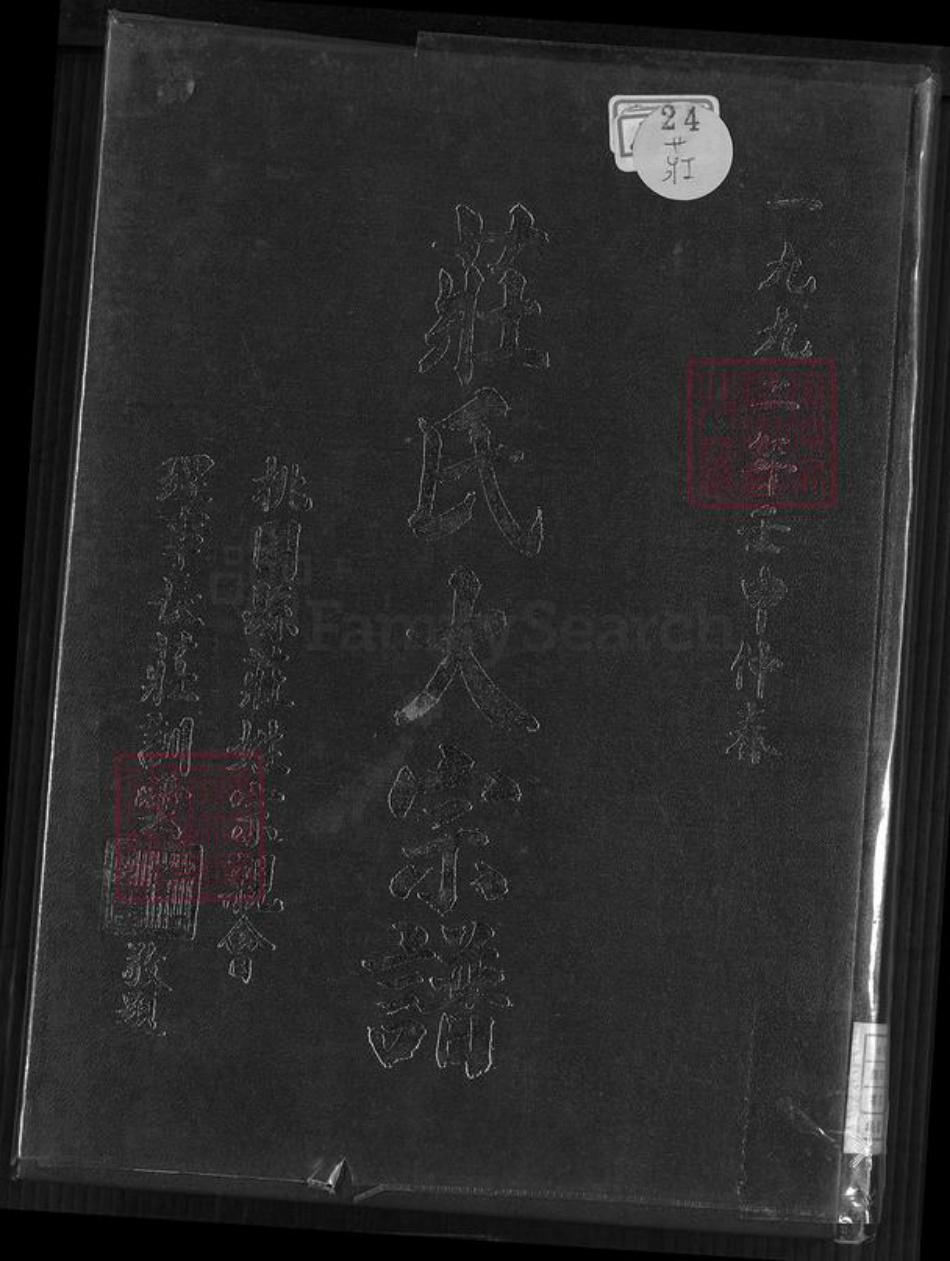 24
莊
一九九二年壬申仲春
莊氏大宗譜
桃園縣莊姓宗親會
理事長莊訓
敬題
FamilySearch